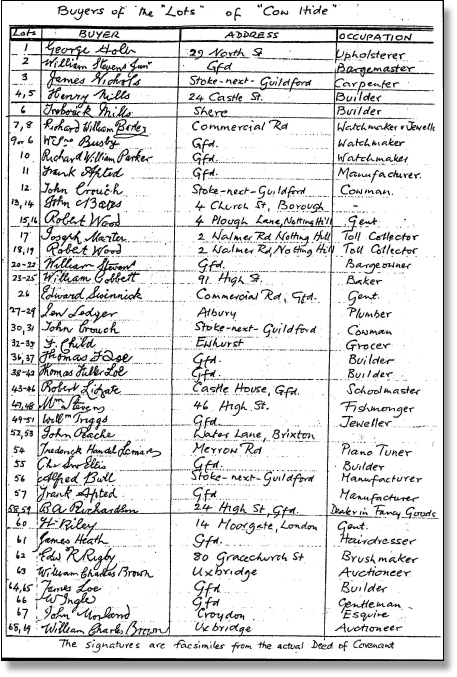 Buyers of the "Lots" of "Cow Hide"
Lots BUYER ADDRESS OCCUPATION
1 George Holt 29 North St Upholsterer
2 William Stevens Junr Gfd Bargemaster
3 James Nichols Stoke-next-Guildford Carpenter
4,5 Henry Mills 24 Castle St. Builder
6 Mills Shere Builder
7,8 Richard William Commercial Rd Watchmaker & Jewelle
9 or 6 Busby Gfd. Watchmaker
10 Richard William Parker Gfd. Watchmaker
11 Frank Apted Gfd. Manufacturer.
12 John Crouch Stoke-next-Guildford Cowman.
13,14 John Bates 4 Church St, Borough -
15,16 Robert Wood 4 Plough Lane, Notting Hill Gent.
17 Joseph Marter 2 Walmer Rd Notting Hill Toll Collector
18,19 Robet Wood 2 Walmer Rd, Notting Hill Toll Collector
20-22 William Stevens Gfd. Bargeowner
23-25 William Cobbett 91 High St. Baker
26 Edward Swinnick Commercial Rd, Gfd. Gent.
27-29 Len Ledger Albury Plumber
30,31 John Crouch Stoke-next-Guildford Cowman
32-35 F. Child Ewhurst Grocer
36,37 Thomas Gfd. Builder
38-42 Thomas Loe Gfd. Builder
43-46 Robert Castle House, Gfd. Schoolmaster
47,48 Wm Stevens 46 High St. Fishmonger
49-51 Willm Triggs Gfd. Jeweller
52,53 John Peache Water Lane, Brixton
54 Frederick Handel Merrow Rd Piano Tuner
55 Ellis Gfd. Builder
56 Alfred Bull Stoke-next-Guildford Manufacturer
57 Frank Apted Gfd. Manufacturer
58,59 B.A. Richardson 24 High St, Gfd. Dealer in Fancy Goods
60 H Riley 14 Moorgate, London Gent.
61 James Heath Gfd. Hairdresser
62 Edw R Rigby 80 Gracechurch St Brushmaker
63 William Charles Brown Uxbridge Auctioneer
64,65 James Loe Gfd Builder
66 W Ingle Gfd Gentleman
67 John Morland Croydon Esquire
68,69 William Charles Brown Uxbridge Auctioneer
The signatures are facsimiles from the actual Deed of Covenant